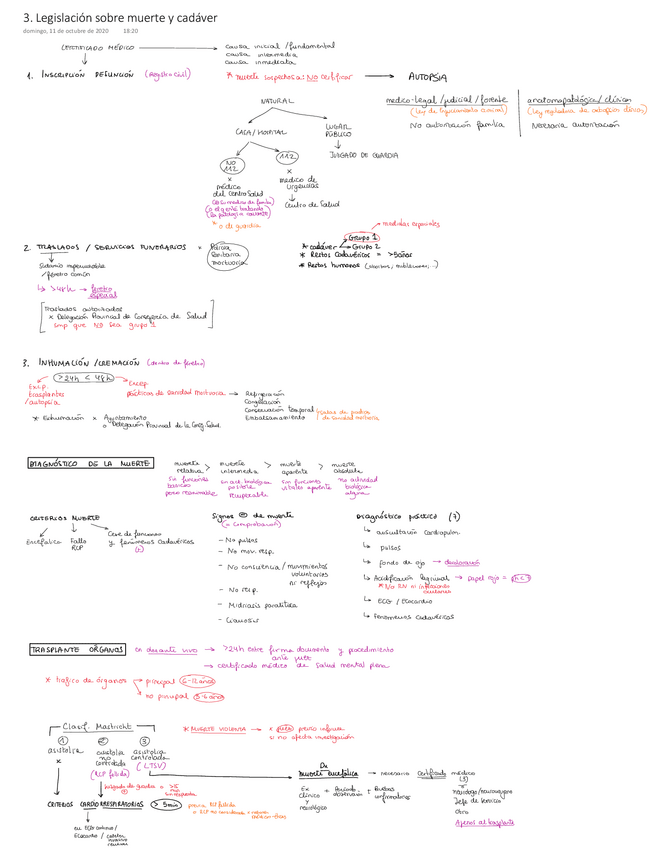 3. Legislación sobre muerte y cadáver
domingo, 11 de octubre de 2020 18:20
CERTIFICADO MÉDICO
causa inicial / fundamental
causa intermedia
causa inmediata
1. INSCRIPCIÓN DEFUNCIÓN (Registro civil)
* muerte sospechosa: NO certificar
AUTOPSIA
medico-legal / judicial / forense
(Ley de Enjuiciamiento criminal)
No autorización familia
anatomopatológica / clínica
Necesaria autorización
NATURAL
CASA / HOSPITAL
LUGAR PÚBLICO
JUZGADO DE GUARDIA
NO 112
112
x
x
médico del Centro Salud
médico de Urgencias
Centro de Salud
* o de guardia
2. TRASLADOS / SERVICIOS FUNERARIOS =
Policía Sanitaria mortuoria
medidas especiales
Grupo 1
* cadáver
Grupo 2
* Restos Cadavéricos = >5años
* Restos humanos
/ féretro común
>48h → féretro especial
Traslados autorizados
x Delegación Provincial de Consejería de Salud
smp que NO sea grupo 1
3. INHUMACIÓN / CREMACIÓN (dentro de féretro)
>24h < 48h
Excep.
Ecasplantes
/autopsia
Excep.
prácticas de sanidad mortuoria
Refrigeración
Congelación
Conservación temporal
Embalsamamiento
* Exhumación x Ayuntamiento
o Delegación Provincial de la Conj. Salud.
DIAGNÓSTICO DE LA MUERTE
muerte relativa > muerte intermedia > muerte aparente > muerte absoluta
sin funciones básicas
pero reanimable
sin act. biológica posible
recuperable
sin funciones vitales aparente
no actividad biológica alguna
CRITERIOS MUERTE
Encefálico
Fallo RCP
Cese de funciones y fenómenos Cadavéricos
Signos ⊖ de muerte
(a comprobación)
- No pulsos
- No mov. resp.
- No consciencia / movimientos voluntarios ni reflejos
- No resp.
- Midriasis paralítica
- Cianosis
Diagnóstico práctico (7)
auscultación Cardiopulm.
pulsos
fondo de ojo → decoloración
Acidificación lagrimal → papel rojo =
ECG / Ecocardio
Fenómenos Cadavéricos
TRASPLANTE ÓRGANOS
en donante vivo → >24h entre firma documento y procedimiento
ante juez
→ certificado médico de salud mental plena
* tráfico de órganos
principal 6-12 años
no principal 3-6 años
Clasif. Mastricht
1
2
3
asistolia
x
asistolia no controlada
(RCP fallida)
asistolia controlada
(LTSV)
* MUERTE VIOLENTA → x juez previo informe
si no afecta investigación
CRITERIOS CARDIORRESPIRATORIOS > 5min
previa RCP fallida
Dx Muerte encefálica → necesario Certificado médico (3)
Ex Clínico y neurológico + Periodo observación + Pruebas confirmatorias
neurólogo / neurocirujano
Jefe de servicio
Otro
Ajenos al trasplante